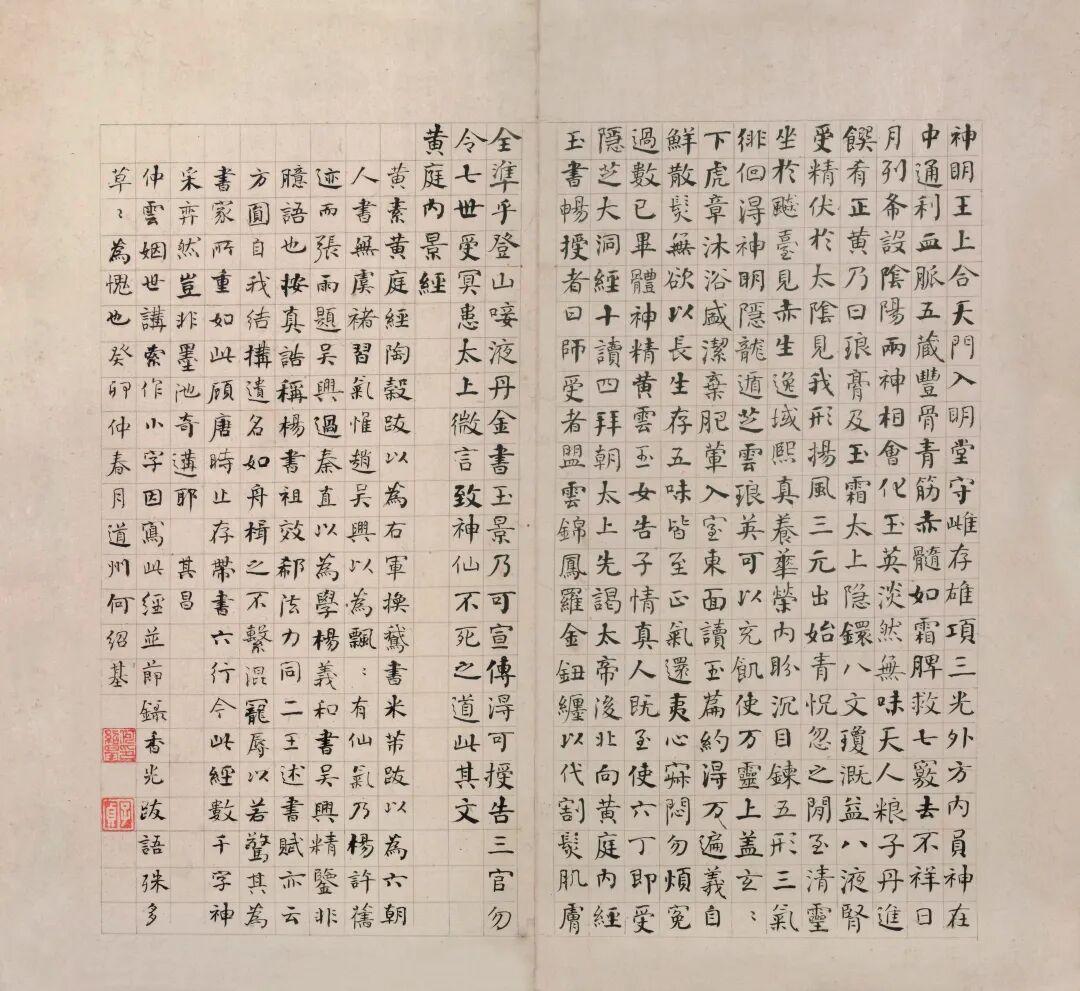 神明王上合天門入明堂守雌存雄項三光外方內員神在
中通利血脈五藏豐骨青筋赤髓如霜脾救七竅去不祥日
月列布設陰陽兩神相會化玉英淡然無味天人粮子丹進
饌肴正黃乃曰琅膏及玉霜太上隱鐶八文瓊溉益八液腎
受精伏於太陰見我形揚風三元出始青怳忽之閒至清靈
坐於飈臺見赤生逸域熙真養華榮內盼沉目鍊五形三氣
徘徊淂神明隱龍遁芝雲琅英可以充飢使万靈上盖玄:
下虎章沐浴盛潔棄肥葷入室東面讀玉篇約得万遍義自
鮮散髮無欲以長生存五味皆至正氣還夷心寂悶勿煩冤
過數已畢體神精黃雲玉女告子情真人既至使六丁即受
隱芝大洞經十讀四拜朝太上先謁太帝後北向黃庭內經
玉書暢授者曰師受者盟雲錦鳳羅金鈕纏以代割髮肌膚
全準乎登山唼液丹金書玉景乃可宣傳淂可授告三官勿
令七世受冥患太上微言致神仙不死之道此其文
黃庭內景經
黃素黃庭經陶穀跋以為右軍換鵝書米芾跋以為六朝
人書無虞褚習氣惟趙吳興以為飄:有仙氣乃楊許舊
迹而張雨題吳興過秦直以為學楊義和書吳興精鑒非
臆語也按真誥稱楊書祖效郗法力同二王述書賦亦云
方圓自我結搆遺名如舟楫之不繫混寵辱以若驚其為
書家所重如此顧唐時止存帶書六行今此經數千字神
采弈然豈非墨池奇遘耶 其昌
仲雲姻世講索作小字因寫此經並節錄香光跋語殊多
草:為愧也癸卯仲春月道州何紹基
子貞